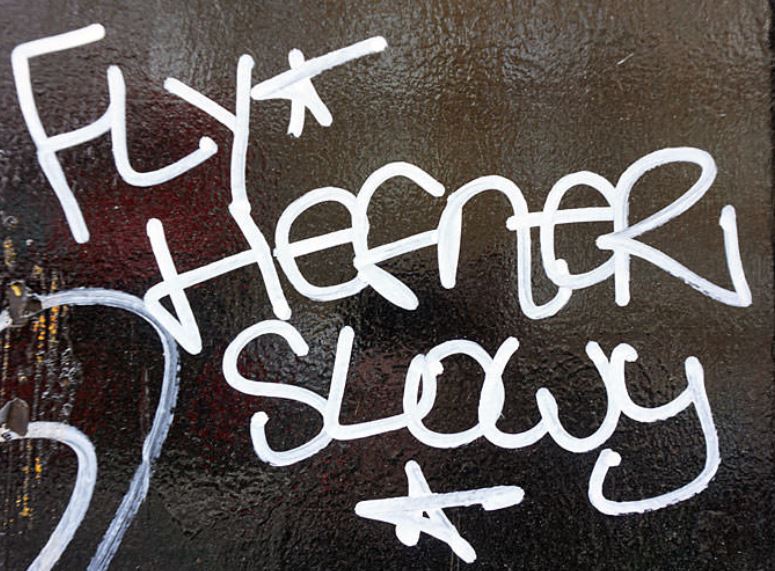 FLY*
HEFNER
SLOWY